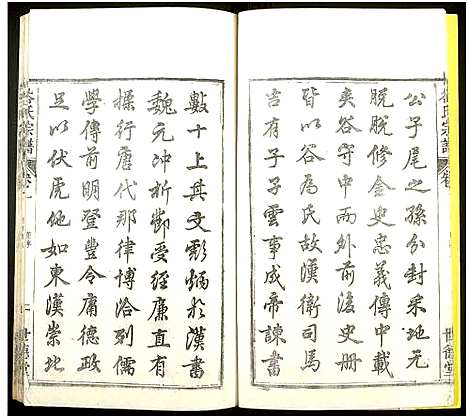 公子尾之孫分封采地元
脱脱修金史忠義傳中載
夾谷守中而外前後史冊
皆以谷爲氏故漢衛司馬
吉有子子雲事成帝諫書
數十上其文彪炳於漢書
魏元冲析鄭受經廉直有
操行唐代那律博洽列儒
學傳前明登豐令庸德政
足以伏虎他如東漢崇北
谷氏宗譜
世德堂
谷氏宗譜
世德堂